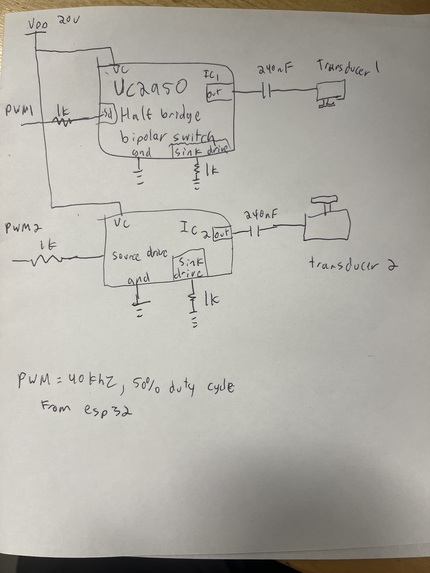 VDD 20V
VC
IC1
240nF
Transducer 1
UC2950
out
PWM1
1k
Sd
Half bridge
bipolar switch
gnd
sink drive
1k
VC
240nF
PWM2
IC2
out
1k
source drive
sink
drive
transducer 2
gnd
1k
PWM = 40khz, 50% duty cycle
From esp32